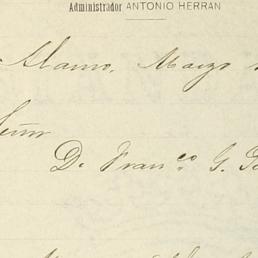 Administrador ANTONIO HERRAN
Alamo, Marzo
Señor
D. Franco. G.